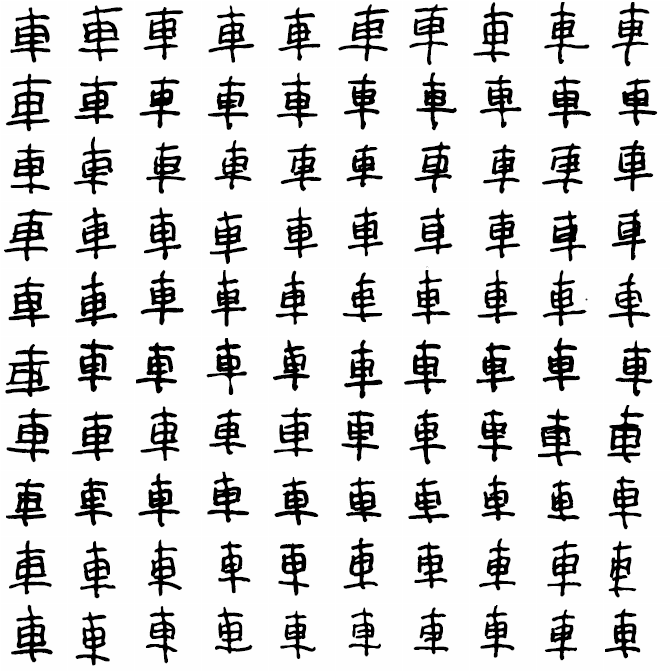 車車車車車車車車車車
車車車車車車車車車車
車車車車車車車車車車
車車車車車車車車車車
車車車車車車車車車車
車車車車車車車車車車
車車車車車車車車車車
車車車車車車車車車車
車車車車車車車車車車
車車車車車車車車車車